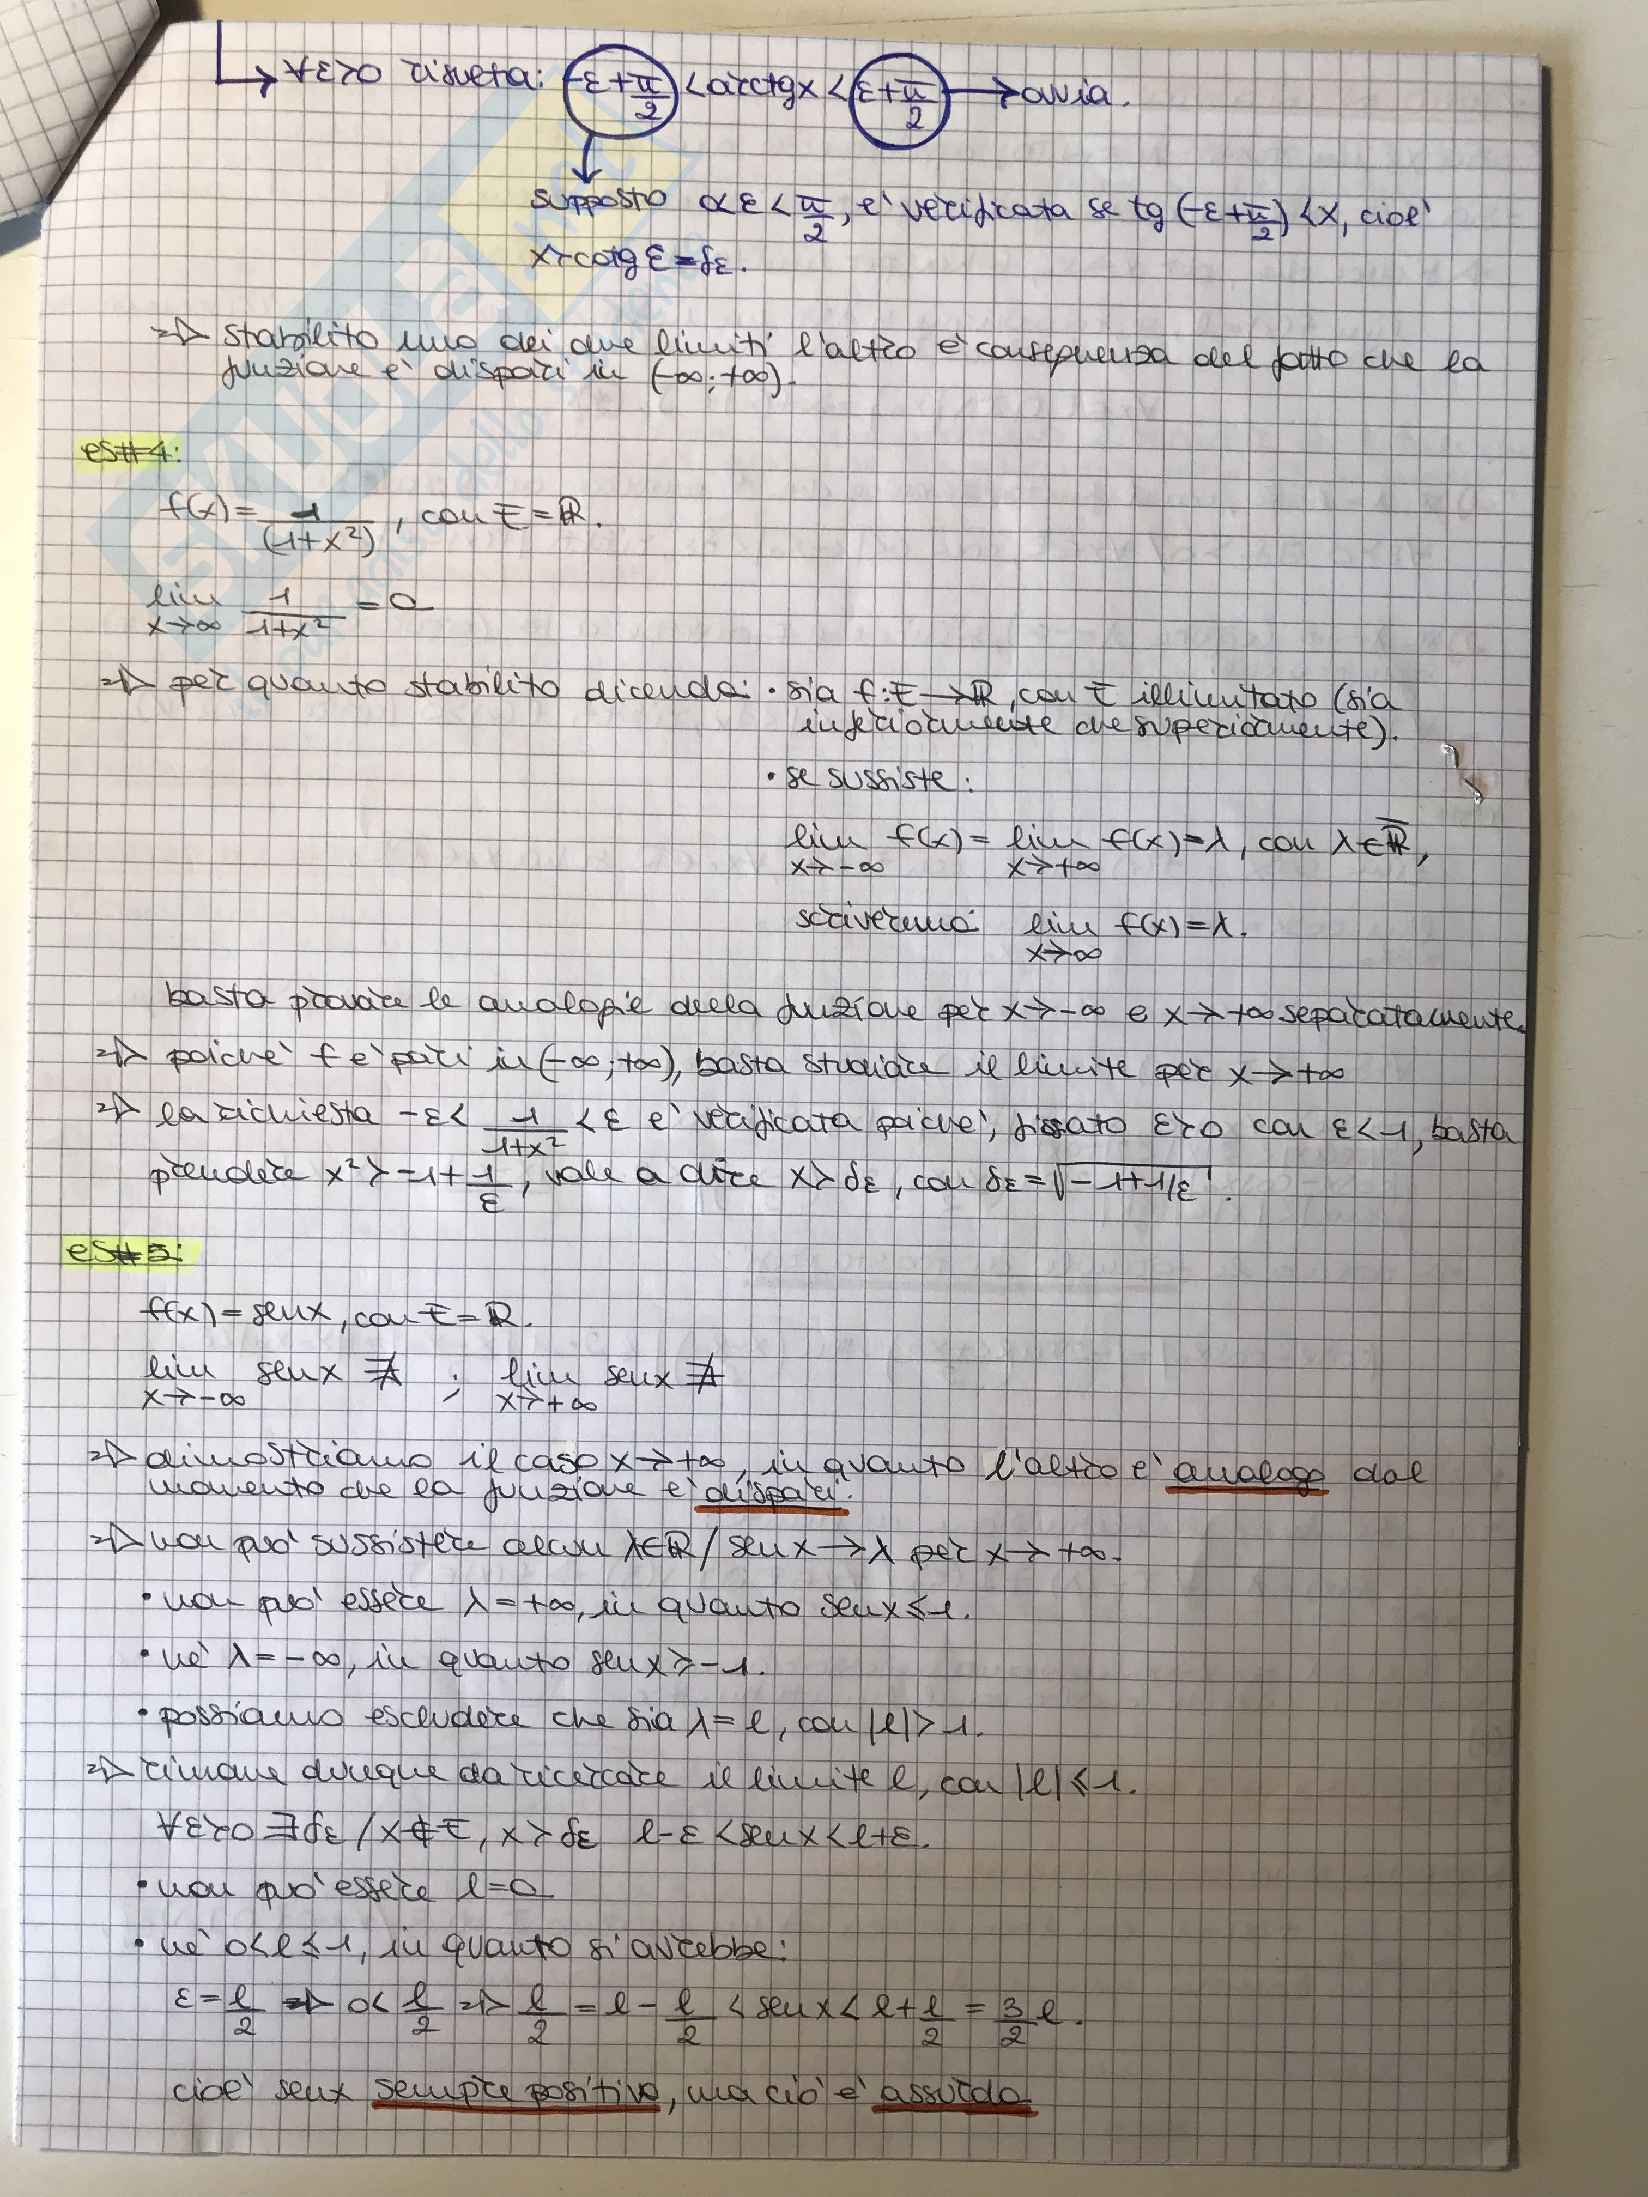 ↳ ∀ε>0 risulta: -ε+π/2 < arctgx < ε+π/2 → ovvia.
supposto 0<ε<π/2, e' verificata se tg(-ε+π/2)<x, cioe'
x>cotgε=δε.
=> stabilito uno dei due limiti l'altro e' conseguenza del fatto che la
funzione e' dispari in (-∞;+∞).
es#4:
f(x)=1/(1+x²), con E=ℝ.
lim x→∞ 1/(1+x²) = 0
=> per quanto stabilito dicendo: • sia f:E→ℝ, con E illimitato (sia
inferiormente che superiormente).
• se sussiste:
lim x→-∞ f(x) = lim x→+∞ f(x)=λ, con λ∈ℝ̅,
scriveremo: lim x→∞ f(x)=λ.
basta provare le analogie della funzione per x→-∞ e x→+∞ separatamente.
=> poiche' f e' pari in (-∞;+∞), basta studiare il limite per x→+∞
=> la richiesta -ε< 1/(1+x²) <ε e' verificata poiche', fissato ε>0 con ε<1, basta
prendere x²>-1+1/ε, vale a dire x>δε, con δε=√(-1+1/ε).
es#5:
f(x)=senx, con E=ℝ.
lim x→-∞ senx ∄ ; lim x→+∞ senx ∄
=> dimostriamo il caso x→+∞, in quanto l'altro e' analogo dal
momento che la funzione e' dispari.
=> non puo' sussistere alcun λ∈ℝ̅ / senx→λ per x→+∞.
• non puo' essere λ=+∞, in quanto senx≤1.
• ne' λ=-∞, in quanto senx≥-1.
• possiamo escludere che sia λ=l, con |l|>1.
=> rimane dunque da ricercare il limite l, con |l|≤1.
∀ε>0 ∃δε / x∉E, x>δε l-ε<senx<l+ε.
• non puo' essere l=0
• ne' 0<l≤1, in quanto si avrebbe:
ε=l/2 => 0<l/2 => l/2 = l-l/2 < senx < l+l/2 = 3/2 l.
cioe' senx sempre positivo, ma cio' e' assurdo